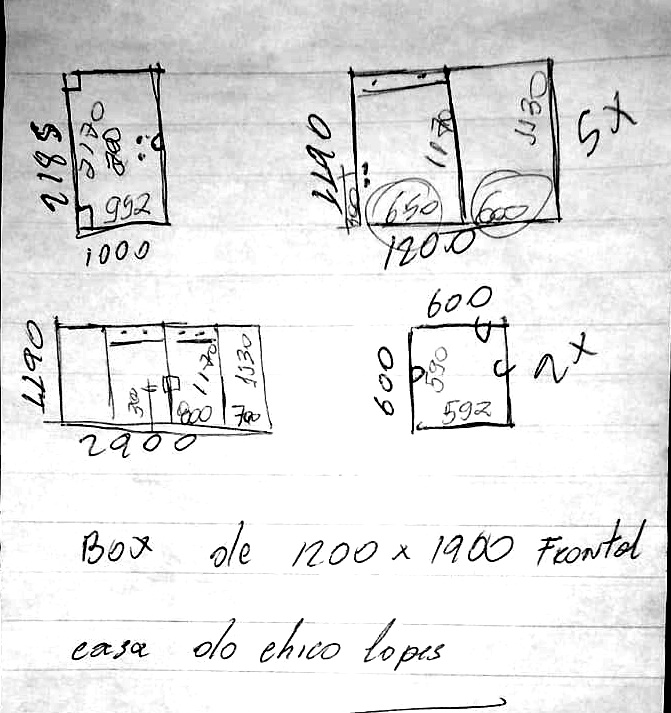 2185
2170
992
1000
1170
1130
5x
650
600
1200
600
2x
600
590
592
1170
1130
300
800
700
2900
Box de 1200 x 1900 Frontal
casa do chico lopes